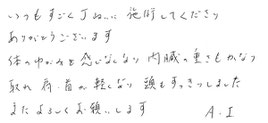 いつもすごく丁ねいに 施術してくださり
ありがとうございます
体の中がれを感じなくなり 内臓の重さもかなり
取れ 肩・首が軽くなり 頭もすっきりしました
またよろしくお願いします
A.I